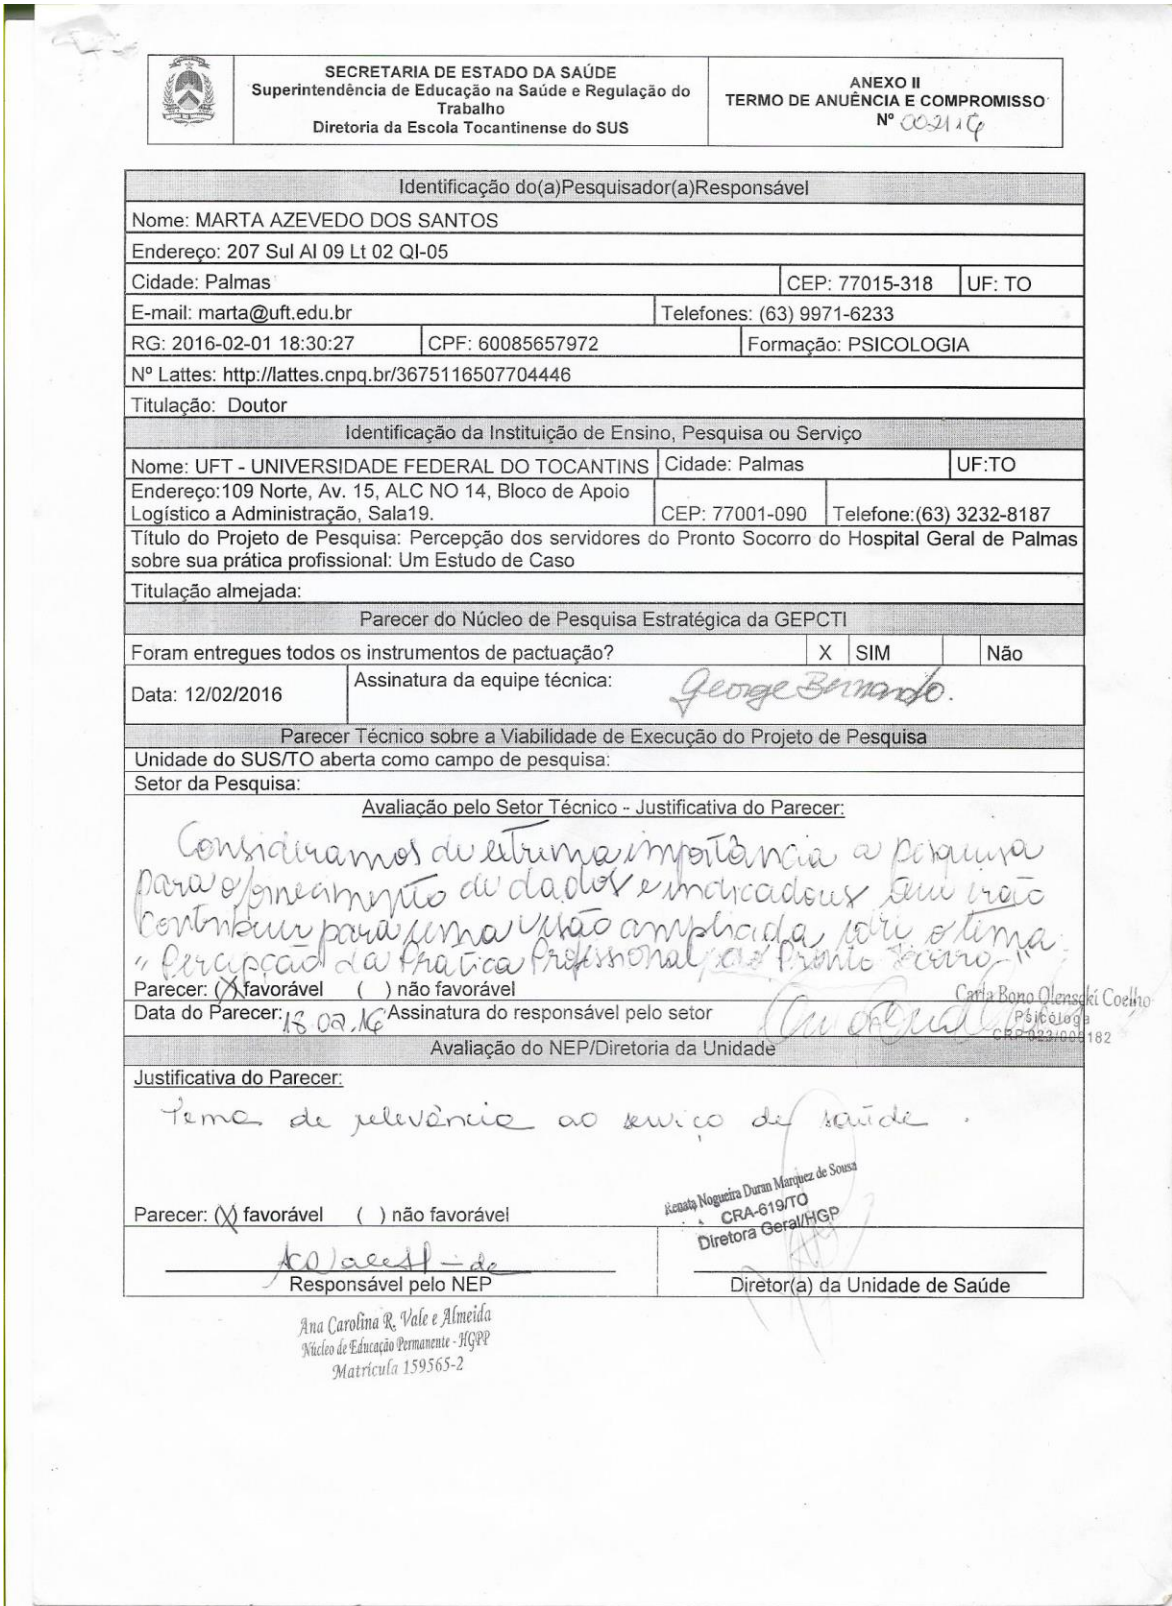 SECRETARIA DE ESTADO DA SAÚDE
Superintendência de Educação na Saúde e Regulação do
Trabalho
Diretoria da Escola Tocantinense do SUS
ANEXO II
TERMO DE ANUÊNCIA E COMPROMISSO
Nº
Identificação do(a)Pesquisador(a)Responsável
Nome: MARTA AZEVEDO DOS SANTOS
Endereço: 207 Sul Al 09 Lt 02 QI-05
Cidade: Palmas CEP: 77015-318 UF: TO
E-mail: marta@uft.edu.br Telefones: (63) 9971-6233
RG: 2016-02-01 18:30:27 CPF: 60085657972 Formação: PSICOLOGIA
Nº Lattes: http://lattes.cnpq.br/3675116507704446
Titulação: Doutor
Identificação da Instituição de Ensino, Pesquisa ou Serviço
Nome: UFT - UNIVERSIDADE FEDERAL DO TOCANTINS Cidade: Palmas UF:TO
Endereço:109 Norte, Av. 15, ALC NO 14, Bloco de Apoio
Logístico a Administração, Sala19. CEP: 77001-090 Telefone:(63) 3232-8187
Título do Projeto de Pesquisa: Percepção dos servidores do Pronto Socorro do Hospital Geral de Palmas
sobre sua prática profissional: Um Estudo de Caso
Titulação almejada:
Parecer do Núcleo de Pesquisa Estratégica da GEPCTI
Foram entregues todos os instrumentos de pactuação? X SIM Não
Data: 12/02/2016 Assinatura da equipe técnica: George Bernardo.
Parecer Técnico sobre a Viabilidade de Execução do Projeto de Pesquisa
Unidade do SUS/TO aberta como campo de pesquisa:
Setor da Pesquisa:
Avaliação pelo Setor Técnico - Justificativa do Parecer:
Consideramos de extrema importância a pesquisa
para o fornecimento de dados e indicadores que irão
contribuir para uma visão ampliada sobre o tema
"Percepção da Prática Profissional do Pronto Socorro"
Parecer: (X) favorável ( ) não favorável
Carla Bono Olenscki Coelho
Psicóloga
CRP 023/000182
Data do Parecer: 18.02.16 Assinatura do responsável pelo setor
Avaliação do NEP/Diretoria da Unidade
Justificativa do Parecer:
Tema de relevância ao serviço de saúde.
Renata Nogueira Duran Marquez de Sousa
CRA-619/TO
Diretora Geral/HGP
Parecer: (X) favorável ( ) não favorável
Responsável pelo NEP Diretor(a) da Unidade de Saúde
Ana Carolina R. Vale e Almeida
Núcleo de Educação Permanente - HGPP
Matrícula 159565-2